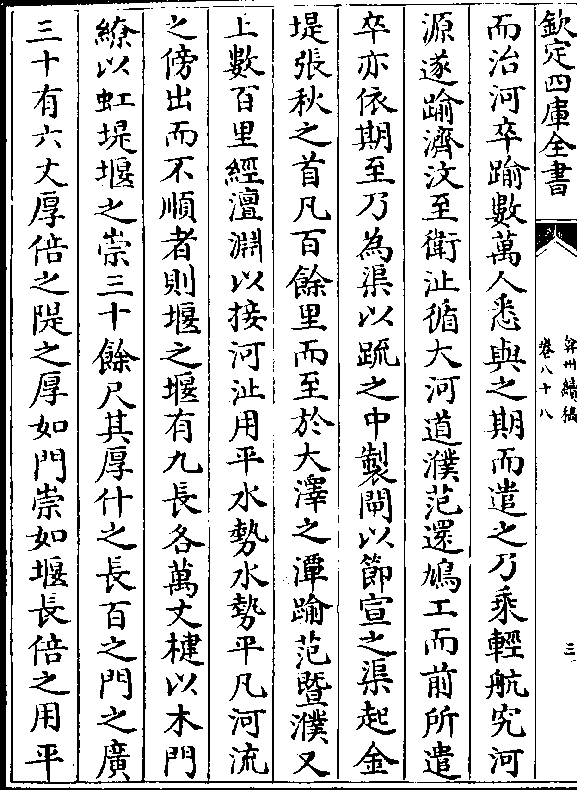 欽定四庫全書
弇州續稿
卷八十八
三
而治河卒踰數萬人悉與之期而遣之乃乘輕航究河
源遂踰濟汶至衛沚循大河道濮范還鳩工而前所遣
卒亦依期至乃為渠以疏之中製閘以節宣之渠起金
堤張秋之首凡百餘里而至於大澤之潭踰范暨濮又
上數百里經澶淵以接河沚用平水勢水勢平凡河流
之傍出而不順者則堰之堰有九長各萬丈楗以木門
繚以虹堤堰之崇三十餘尺其厚什之長百之門之廣
三十有六丈厚倍之隄之厚如門崇如堰長倍之用平